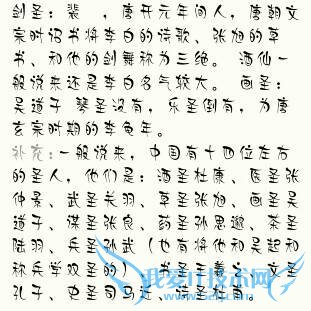 剑圣:裴 ，唐开元年间人，唐朝文
宗时诏书将李白的诗歌、张旭的草
书、和他的剑舞称为三绝。 酒仙一
般说来还是李白名气较大。 画圣：
吴道子 琴圣没有，乐圣倒有，为唐
玄宗时期的李龟年。
补充:一般说来，中国有十四位左右
的圣人，他们是：酒圣杜康、医圣张
仲景、武圣关羽、草圣张旭、画圣吴
道子、谋圣张良、药圣孙思邈、茶圣
陆羽、兵圣孙武（也有将他和吴起和
称兵学双圣的） 书圣王羲之 文圣
孔子、史圣司马迁、诗圣杜甫。
我爱IT技术网